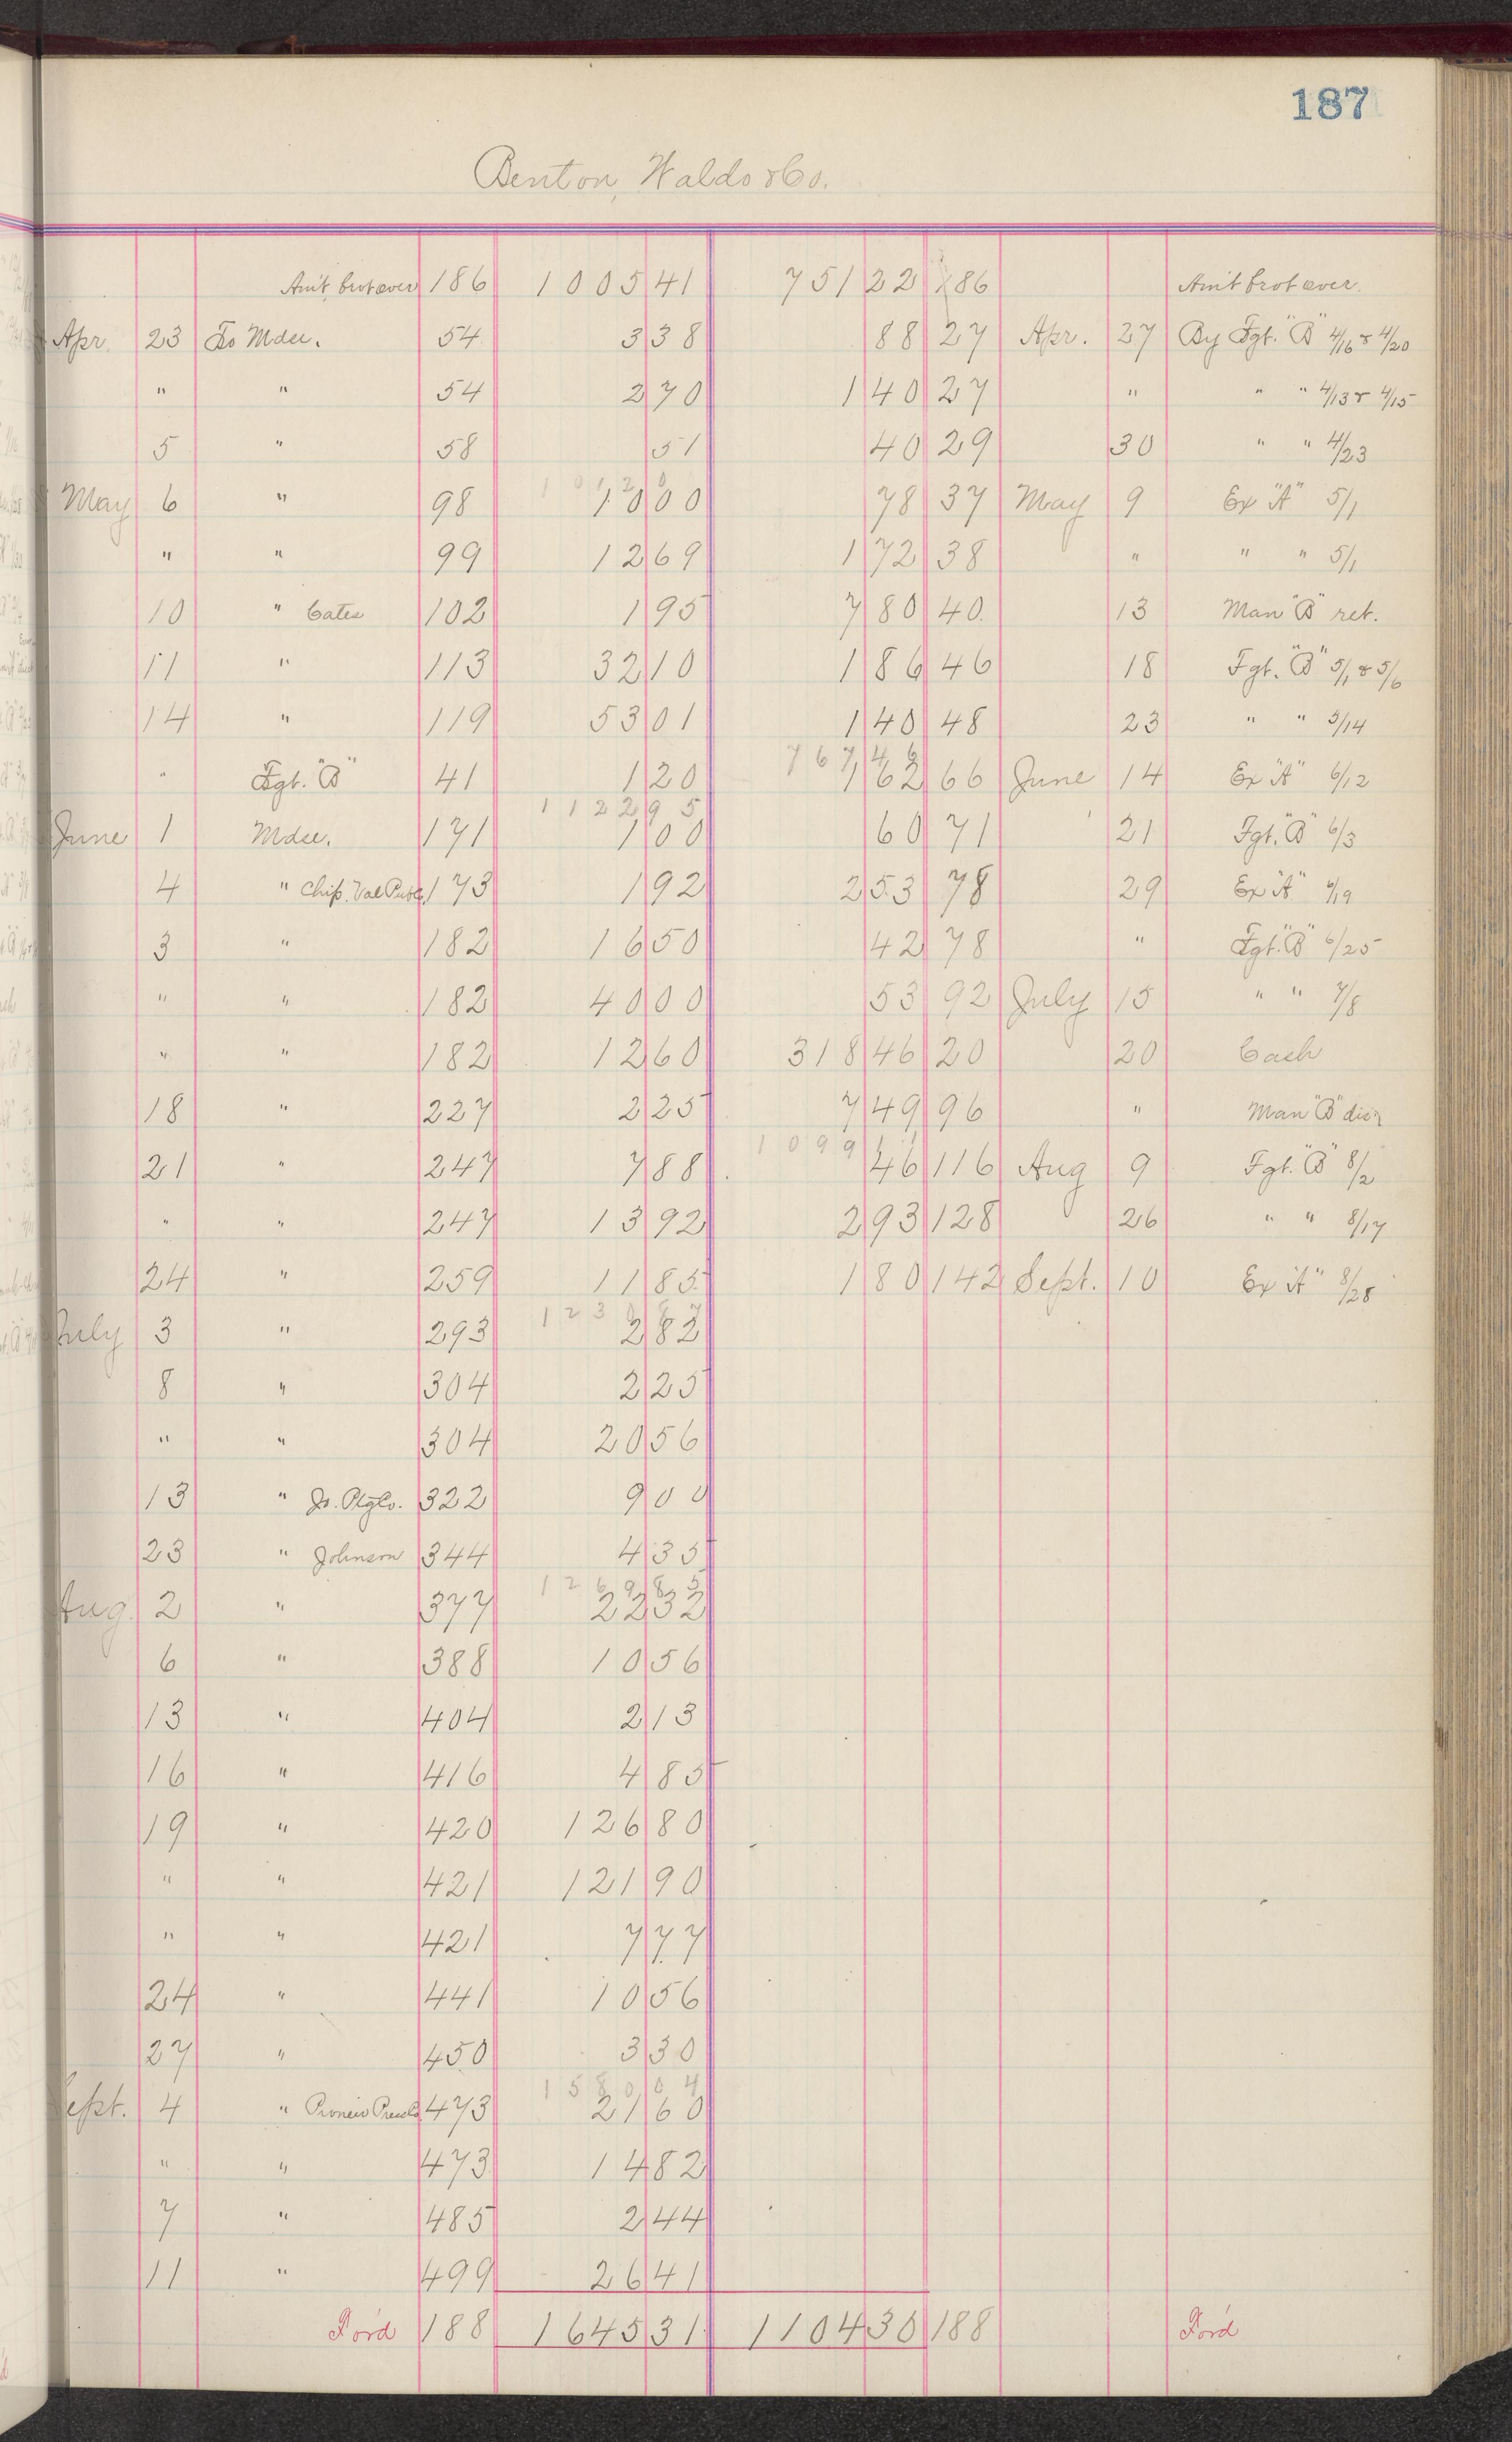 187
Benton, Waldo & Co.
Am't brot over 186 1005 41 751 22 186 Am't brot over.
Apr. 23 To Mdse. 54 3 38 88 27 Apr. 27 By Fgt. "B" 4/16 & 4/20
" " 54 2 70 1 40 27 " " " 4/13 & 4/15
5 " 58 51 40 29 30 " " 4/23
1012 0
May 6 " 98 10 00 78 37 May 9 Ex "A" 5/1
" " 99 12 69 1 72 38 " " " 5/1
10 " Cates 102 1 95 7 80 40 13 Man "B" ret.
11 " 113 32 10 1 86 46 18 Fgt. "B" 5/1 & 5/6
14 " 119 53 01 1 40 48 23 " " 5/14
767 46
" Fgt. "B" 41 1 20 1 62 66 June 14 Ex "A" 6/12
1122 95
June 1 Mdse. 171 1 00 60 71 21 Fgt. "B" 6/3
4 " Chip. Val Pub. 173 1 92 2 53 78 29 Ex "A" 6/19
3 " 182 16 50 42 78 " Fgt. "B" 6/25
" " 182 40 00 53 92 July 15 " " 7/8
" " 182 12 60 318 46 20 20 Cash
18 " 227 2 25 7 49 96 " Man "B" dis
1099 11
21 " 247 7 88 46 116 Aug 9 Fgt. "B" 8/2
" " 247 13 92 2 93 128 26 " " 8/17
24 " 259 11 85 1 80 142 Sept. 10 Ex "A" 8/28
1230 87
July 3 " 293 2 82
8 " 304 2 25
" " 304 20 56
13 " 322 9 00
23 " Johnson 344 4 35
1269 85
Aug. 2 " 377 22 32
6 " 388 10 56
13 " 404 2 13
16 " 416 4 85
19 " 420 126 80
" " 421 121 90
" " 421 7 77
24 " 441 10 56
27 " 450 3 30
1580 04
Sept. 4 " 473 21 60
" " 473 14 82
7 " 485 2 44
11 " 499 26 41
For'd 188 1645 31 1104 30 188 For'd